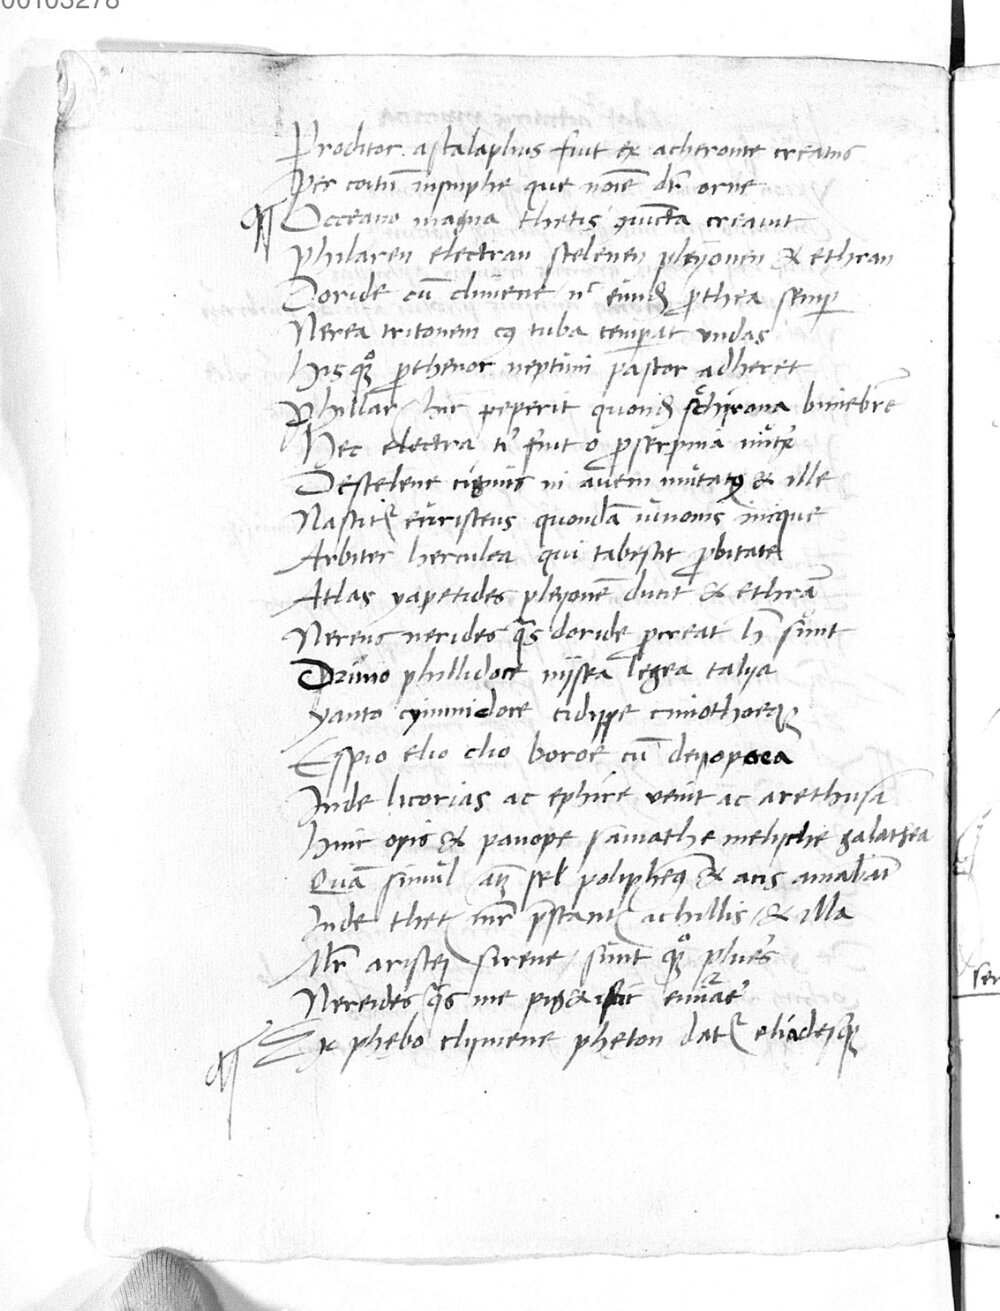 00103278
Proditor ascalaphus fuit ex acheronte creatus
Per coitũ nimphe que noĩe dr̃ orne
Occeano magna thetis iuncta creauit
Philaren electran stelenen pleyonen & ethran
Doride cũ climene prthea semp
Nerea tritonem cuius tuba temperat vndas
hisq prothenor neptuni pastor adheret
Phillare hinc peperit quondã schirona bimẽbrẽ
Hec electra fuit o proserpina
De stelene cignus in auem mutatus & ille
Nascitur euristeus quondã iunonis inique
Arbiter herculea qui tabescit probitate
Atlas yapetides pleyonẽ ducit & ethrã
Nereus nerides quas doride procreat h sunt
Drimo phillidoce nissea legea talya
Yanto cymmidoce cidippe cimothoeque
Espio elio clio boroe cũ deyopoea
Inde licorias ac ephire venit ac arethusa
hinc opis & panope samathe melyche galathea
Quã simul atque poliphemus & acis amabãt
Inde thetis prestantis achillis & illa
Mr̃ aristei sirene sunt plures
Nereides quas me
Ex phebo clymene pheton datur eliadesque
ser